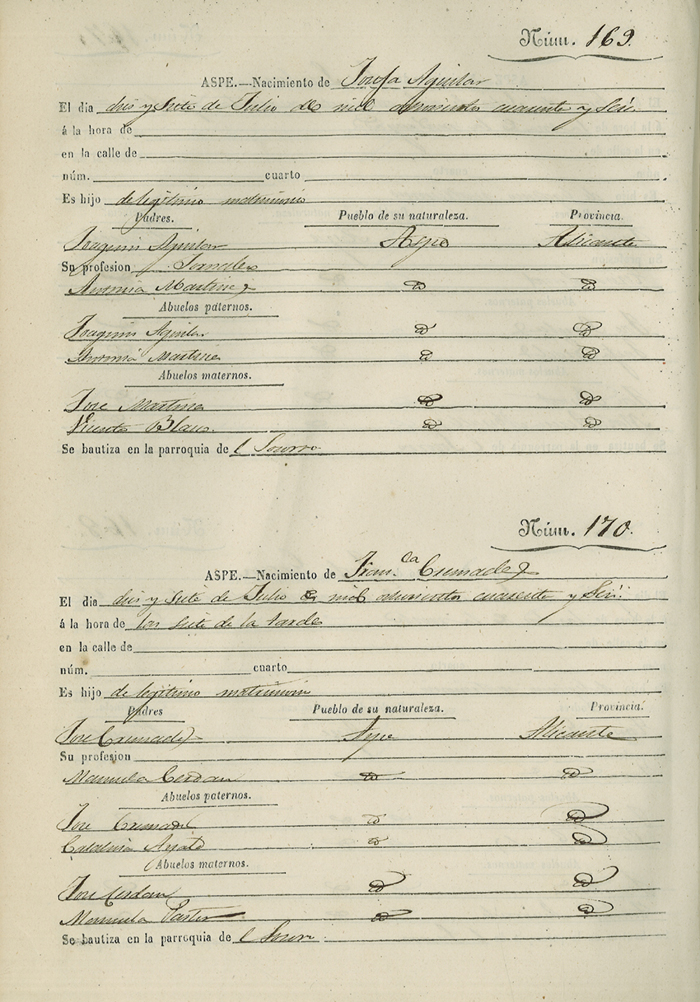 Núm. 169.
ASPE.—Nacimiento de Josefa Aguilar
El dia dies y siete de Julio de mil ochocientos cuarenta y seis
á la hora de
en la calle de
núm. cuarto
Es hijo de legitimo matrimonio
Padres. Pueblo de su naturaleza. Provincia.
Joaquin Aguilar Aspe Alicante
Su profesion Jornalero
Antonia Martinez id id
Abuelos paternos.
Joaquin Aguilar id id
Antonia Martinez id id
Abuelos maternos.
Jose Martinez id id
Vicenta Blasco id id
Se bautiza en la parroquia de l Socorro
Núm. 170.
ASPE.—Nacimiento de Fran.ca Cremades
El dia dies y siete de Julio de mil ochocientos cuarenta y seis
á la hora de las siete de la tarde
en la calle de
núm. cuarto
Es hijo de legitimo matrimonio
Padres Pueblo de su naturaleza. Provincia.
Jose Cremades Aspe Alicante
Su profesion
Manuela Cerdan id id
Abuelos paternos.
Jose Cremades id id
Catalina id id
Abuelos maternos.
Jose Cerdan id id
Manuela Pastor id id
Se bautiza en la parroquia de l Socorro